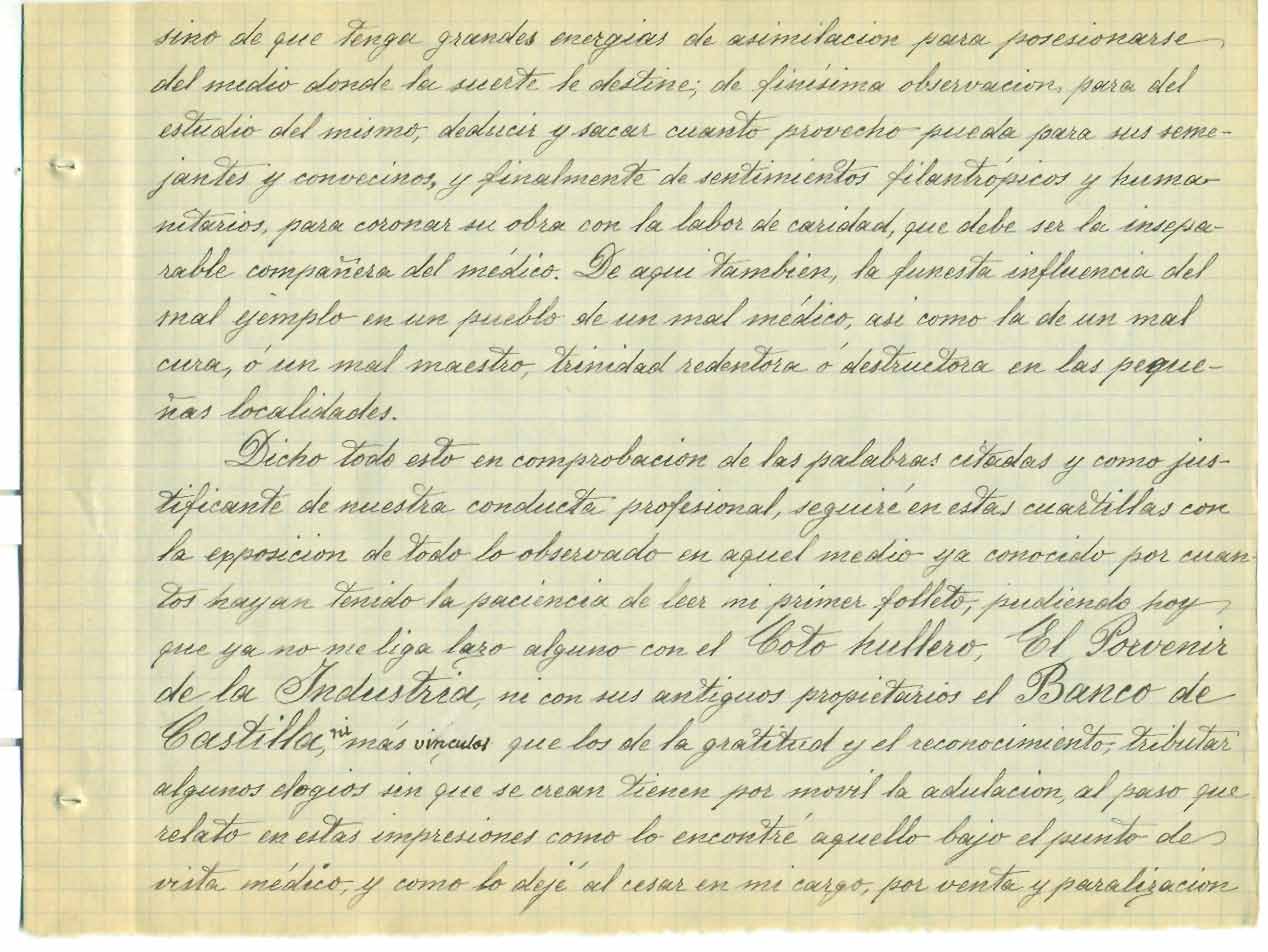 sino de que tenga grandes energias de asimilacion para posesionarse
del medio donde la suerte le destine; de finísima observacion, para del
estudio del mismo, deducir y sacar cuanto provecho pueda para sus seme-
jantes y convecinos, y finalmente de sentimientos filantrópicos y huma-
nitarios, para coronar su obra con la labor de caridad, que debe ser la insepa-
rable compañera del médico. De aqui tambien, la funesta influencia del
mal ejemplo en un pueblo de un mal médico, asi como la de un mal
cura, ó un mal maestro, trinidad redentora ó destructora en las peque-
ñas localidades.
Dicho todo esto en comprobacion de las palabras citadas y como jus-
tificante de nuestra conducta profesional, seguiré en estas cuartillas con
la exposicion de todo lo observado en aquel medio ya conocido por cuan-
tos hayan tenido la paciencia de leer mi primer folleto, pudiendo hoy
que ya no me liga lazo alguno con el Coto hullero, El Porvenir
de la Industria, ni con sus antiguos propietarios el Banco de
Castilla, ni más vínculos que los de la gratitud y el reconocimiento, tributar
algunos elogios sin que se crean tienen por movil la adulacion, al paso que
relato en estas impresiones como lo encontré aquello bajo el punto de
vista médico, y como lo dejé al cesar en mi cargo, por venta y paralizacion